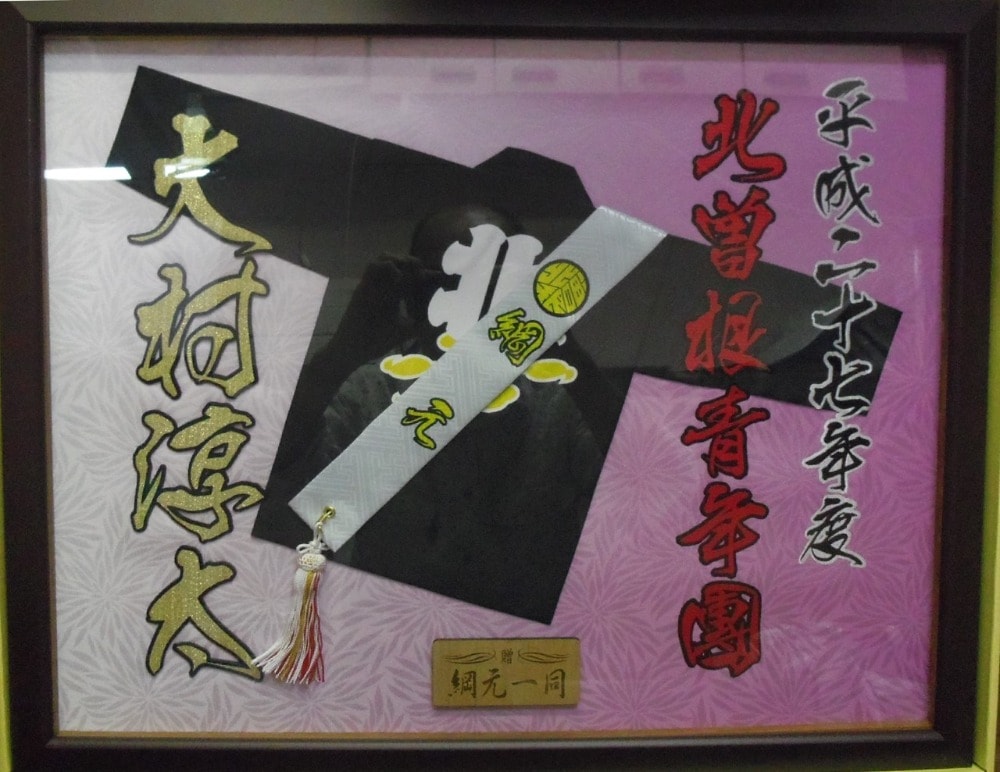 平成二十七年度
北曽根青年團
綱元
大村淳太
贈
綱元一同